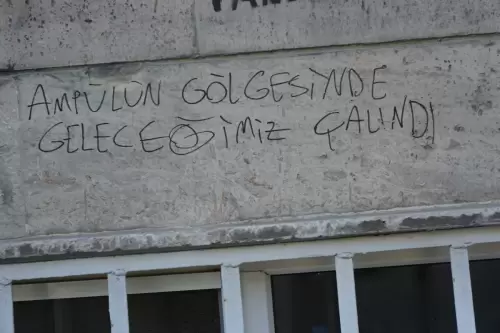 AMPÜLÜN GÖLGESİNDE
GELECEĞİMİZ ÇALINDI